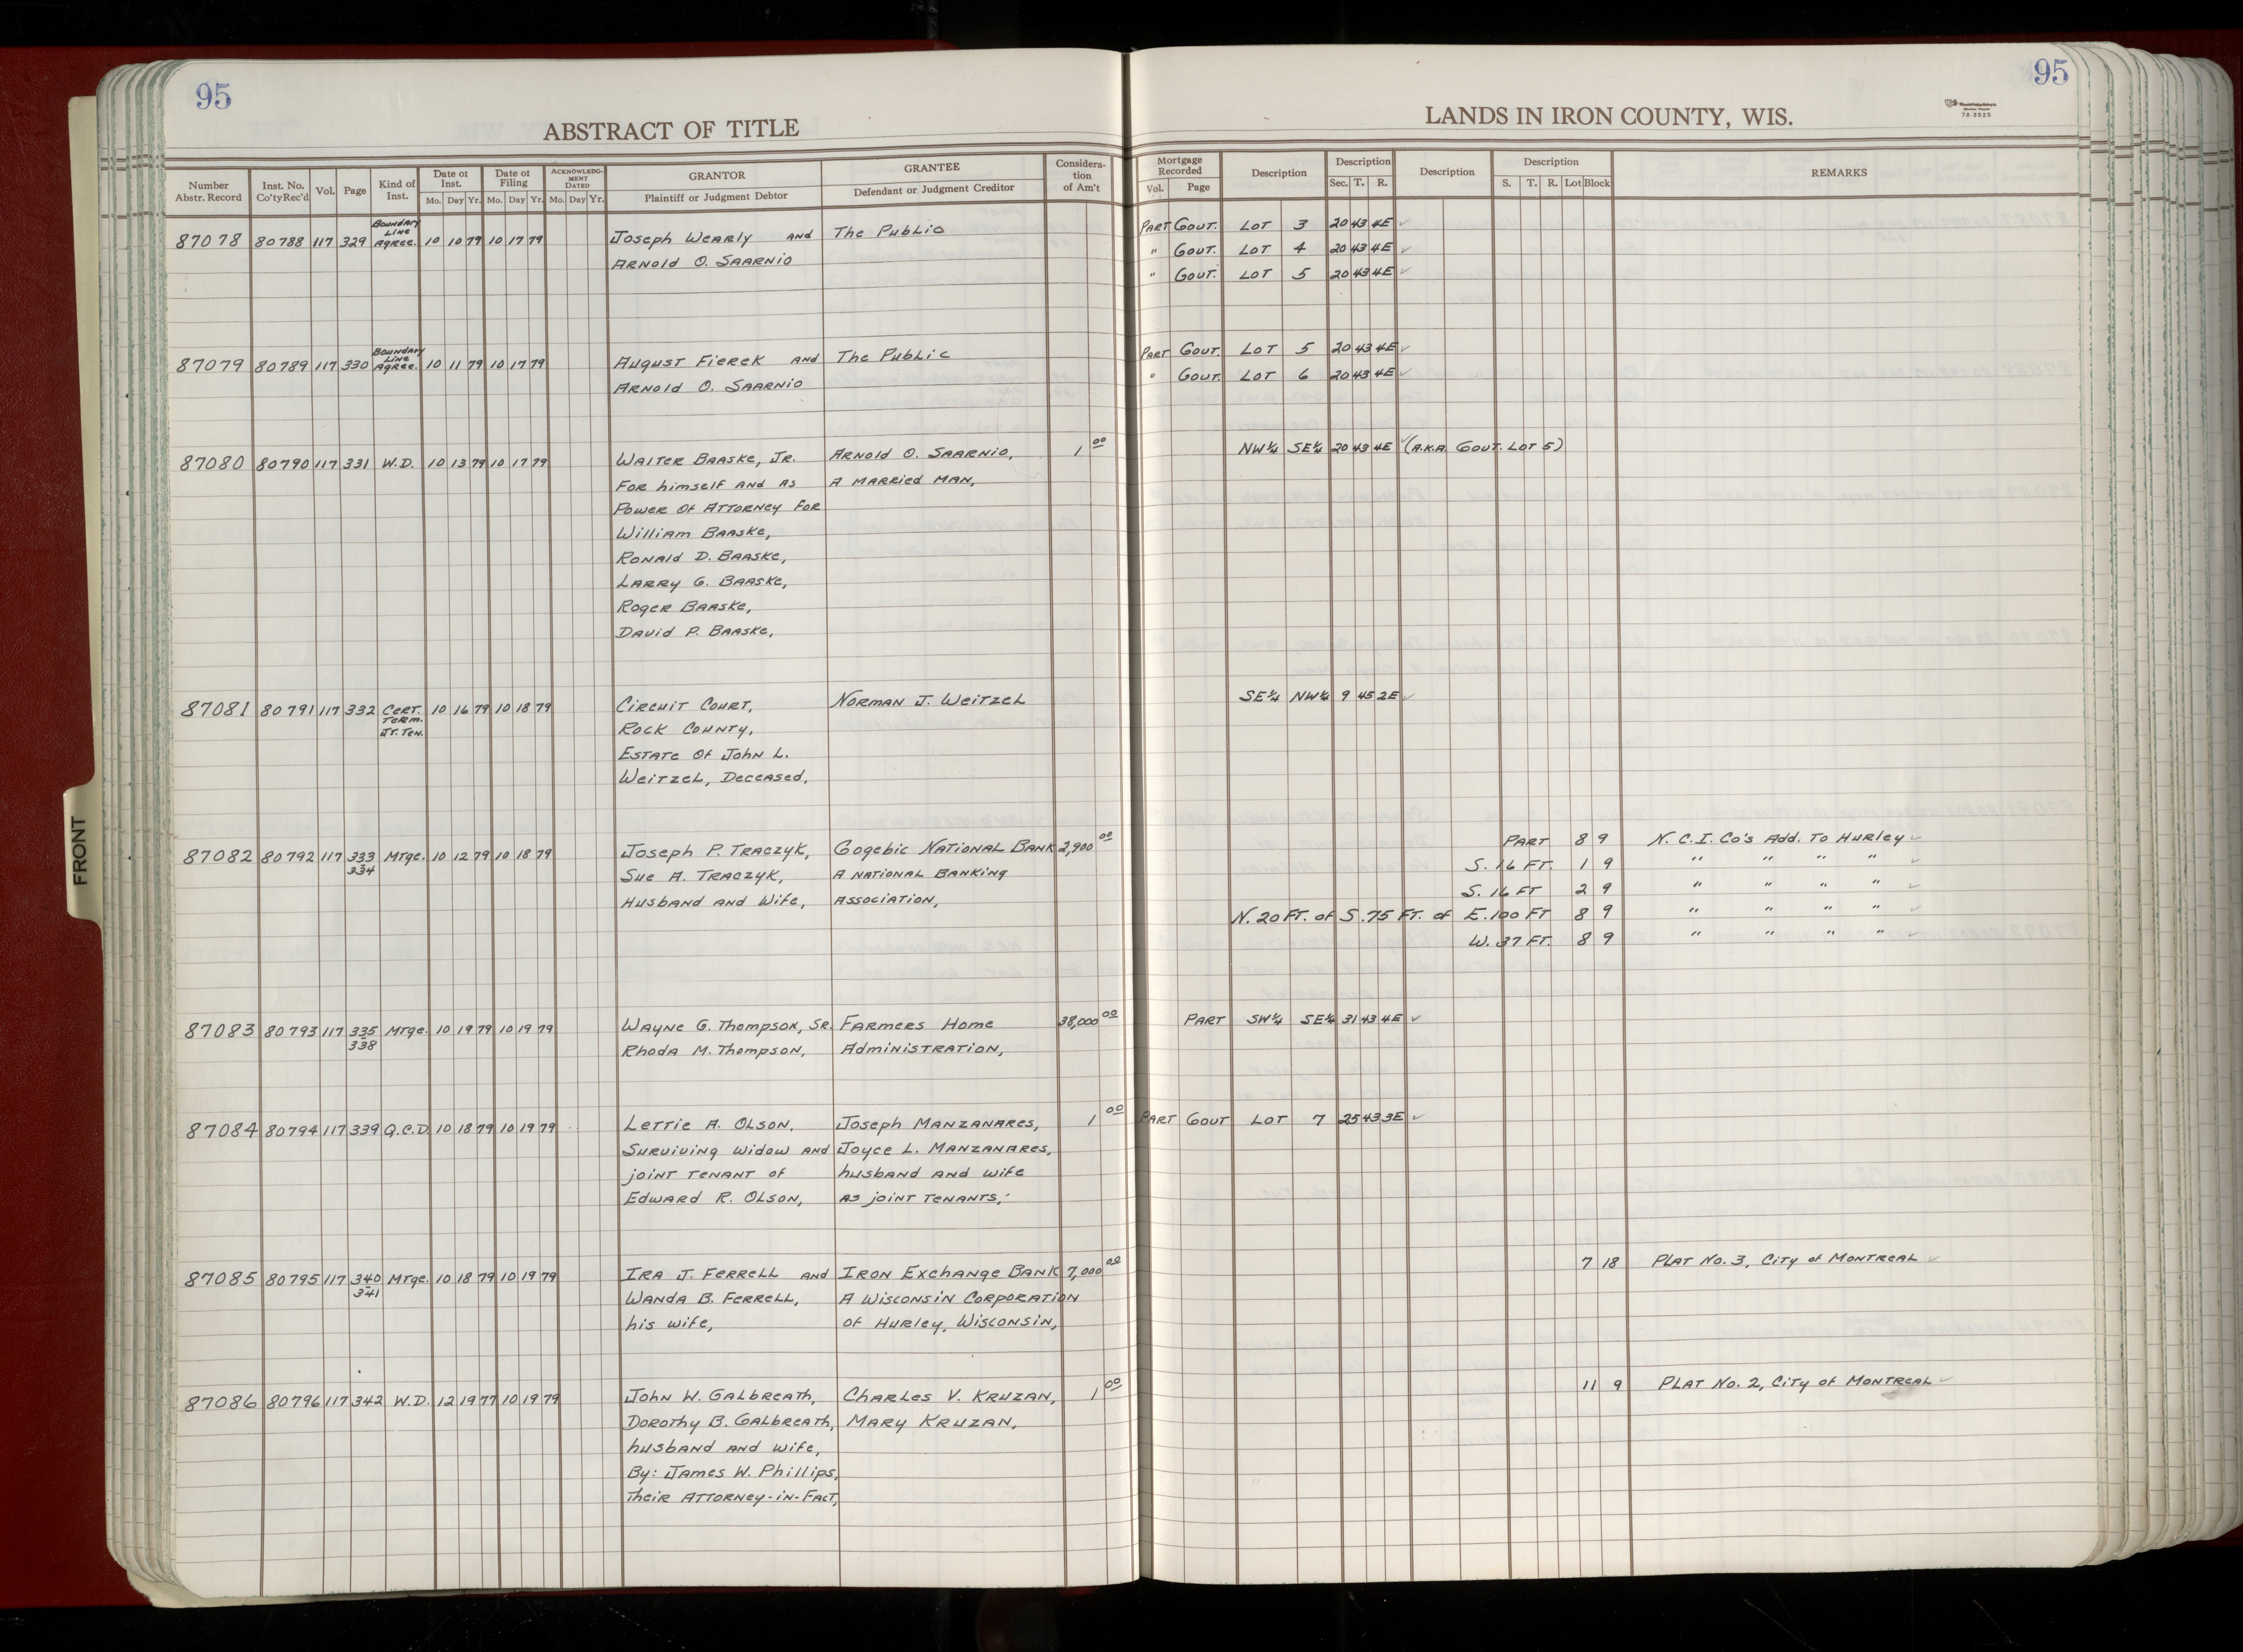 95
95
ABSTRACT OF TITLE
LANDS IN IRON COUNTY, WIS.
70-3525
Number Abstr. Record | Inst. No. Co'ty Rec'd | Vol. | Page | Kind of Inst. | Date of Inst. Mo. Day Yr. | Date of Filing Mo. Day Yr. | ACKNOWLEDGMENT DATED Mo. Day Yr. | GRANTOR Plaintiff or Judgment Debtor | GRANTEE Defendant or Judgment Creditor | Consideration of Am't | Mortgage Recorded Vol. Page | Description | Description Sec. T. R. | Description | Description S. T. R. Lot Block | REMARKS
87078 80788 117 329 Boundary Line Agree. 10 10 79 10 17 79 Joseph Wearly and The Public PART GOVT. LOT 3 20 43 4E ✓
Arnold O. Saarnio " GOVT. LOT 4 20 43 4E ✓
" GOVT. LOT 5 20 43 4E ✓
87079 80789 117 330 Boundary Line Agree. 10 11 79 10 17 79 August Fierek and The Public PART GOVT. LOT 5 20 43 4E ✓
Arnold O. Saarnio " GOVT. LOT 6 20 43 4E ✓
87080 80790 117 331 W.D. 10 13 79 10 17 79 Walter Baaske, Jr. Arnold O. Saarnio, 1 00 NW¼ SE¼ 20 43 4E ✓ (A.K.A. GOVT. LOT 5)
For himself and as A married man,
Power of Attorney for
William Baaske,
Ronald D. Baaske,
Larry G. Baaske,
Roger Baaske,
David P. Baaske,
87081 80791 117 332 Cert. Term. Jt. Ten. 10 16 79 10 18 79 Circuit Court, Norman J. Weitzel SE¼ NW¼ 9 45 2E ✓
Rock County,
Estate of John L.
Weitzel, Deceased,
87082 80792 117 333-334 Mtge. 10 12 79 10 18 79 Joseph P. Traczyk, Gogebic National Bank 2,900 00 PART 8 9 N.C.I. Co's Add. To Hurley ✓
Sue A. Traczyk, A National Banking S. 16 FT. 1 9 " " " " ✓
Husband and Wife, Association, S. 16 FT 2 9 " " " " ✓
N. 20 FT. of S. 75 FT. of E. 100 FT 8 9 " " " " ✓
W. 37 FT. 8 9 " " " " ✓
87083 80793 117 335-338 Mtge. 10 19 79 10 19 79 Wayne G. Thompson, Sr. Farmers Home 38,000 00 PART SW¼ SE¼ 31 43 4E ✓
Rhoda M. Thompson, Administration,
87084 80794 117 339 Q.C.D. 10 18 79 10 19 79 Lettie A. Olson, Joseph Manzanares, 1 00 PART GOVT LOT 7 25 43 3E ✓
Surviving widow and Joyce L. Manzanares,
joint tenant of husband and wife
Edward R. Olson, as joint tenants,
87085 80795 117 340-341 Mtge. 10 18 79 10 19 79 Ira J. Ferrell and Iron Exchange Bank 7,000 00 7 18 Plat No. 3, City of Montreal ✓
Wanda B. Ferrell, A Wisconsin Corporation
his wife, of Hurley, Wisconsin,
87086 80796 117 342 W.D. 12 19 77 10 19 79 John W. Galbreath, Charles V. Kruzan, 1 00 11 9 Plat No. 2, City of Montreal ✓
Dorothy B. Galbreath, Mary Kruzan,
husband and wife,
By: James W. Phillips,
Their Attorney-in-Fact,
FRONT